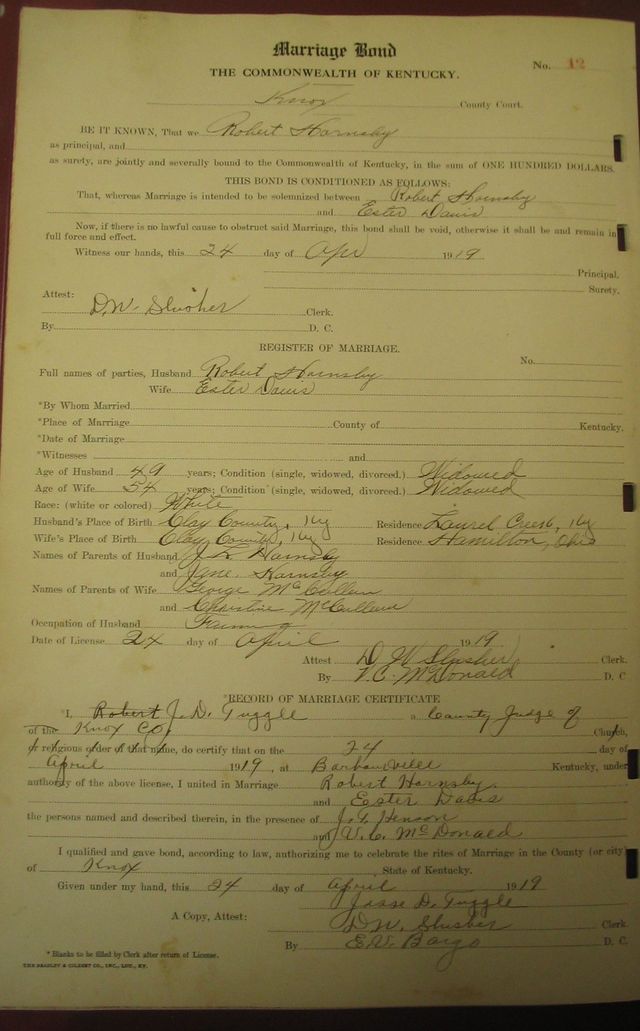 Marriage Bond
No. 12
THE COMMONWEALTH OF KENTUCKY.
Knox County Court.
BE IT KNOWN, That we Robert Hornsby
as principal, and
as surety, are jointly and severally bound to the Commonwealth of Kentucky, in the sum of ONE HUNDRED DOLLARS.
THIS BOND IS CONDITIONED AS FOLLOWS:
That, whereas Marriage is intended to be solemnized between Robert Hornsby
and Ester Davis
Now, if there is no lawful cause to obstruct said Marriage, this bond shall be void, otherwise it shall be and remain in
full force and effect.
Witness our hands, this 24 day of Apr 1919
Principal.
Surety.
Attest:
D.W. Slusher Clerk.
By D. C.
REGISTER OF MARRIAGE.
No.
Full names of parties, Husband Robert Hornsby
Wife Ester Davis
*By Whom Married
*Place of Marriage County of Kentucky.
*Date of Marriage
*Witnesses and
Age of Husband 49 years; Condition (single, widowed, divorced.) Widowed
Age of Wife 54 years; Condition (single, widowed, divorced.) Widowed
Race: (white or colored) White
Husband's Place of Birth Clay County, Ky Residence Laurel Creek, Ky
Wife's Place of Birth Clay County, Ky Residence Hamilton, Ohio
Names of Parents of Husband Hornsby
and Jane Hornsby
Names of Parents of Wife George McCollum
and Christine McCollum
Occupation of Husband Farming
Date of License 24 day of April 1919
Attest D W Slusher Clerk.
By V.C. McDonald D. C
*RECORD OF MARRIAGE CERTIFICATE
*I, Robert J. D. Tuggle a County Judge of
of the Knox Co, Church,
or religious order of that name, do certify that on the 24 day of
April 1919, at Barbourville Kentucky, under
authority of the above license, I united in Marriage Robert Hornsby
and Ester Davis
the persons named and described therein, in the presence of J.T. Henson
and V.C. McDonald
I qualified and gave bond, according to law, authorizing me to celebrate the rites of Marriage in the County (or city)
of Knox State of Kentucky.
Given under my hand, this 24 day of April 1919
Jasse D. Tuggle
A Copy, Attest: D W. Slusher Clerk.
By E.V. Bargo D. C.
* Blanks to be filled by Clerk after return of License.
THE BRADLEY & GILBERT CO., INC., LOU., KY.